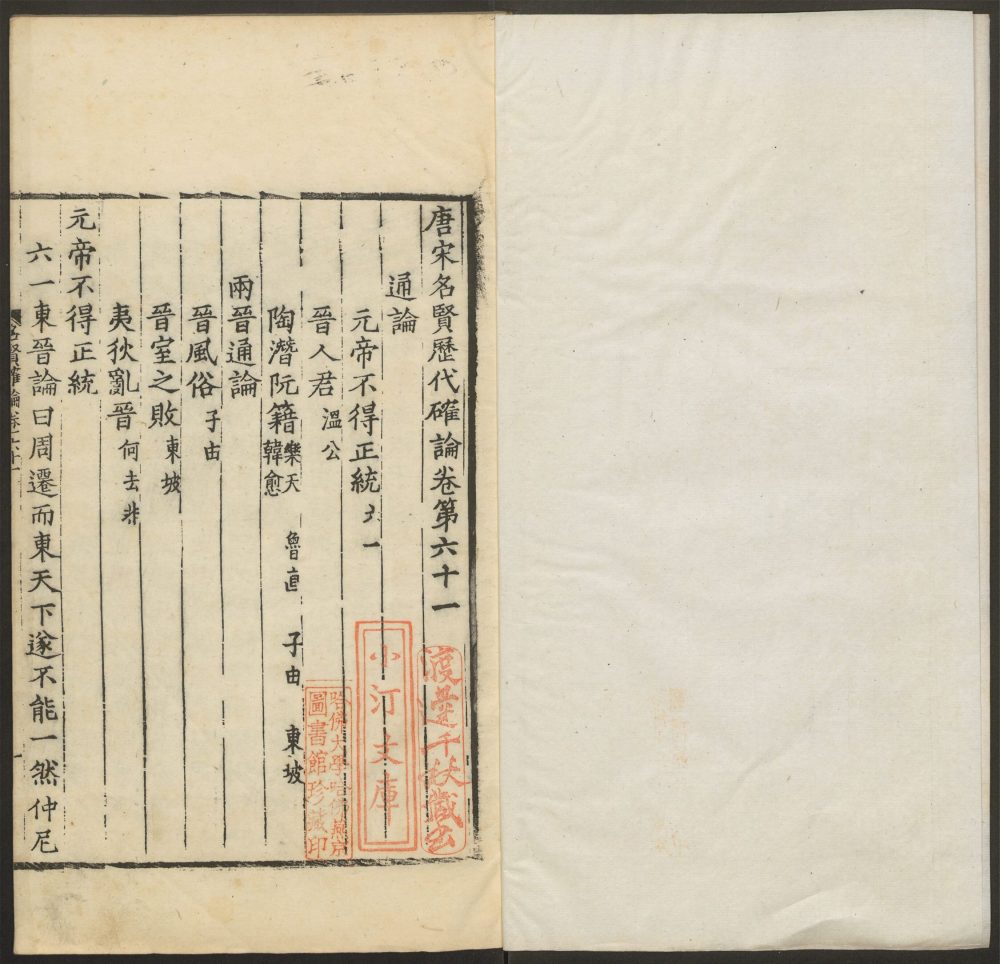 唐宋名賢歷代確論卷第六十一
通論
元帝不得正統 六一
晉人君 溫公
陶潛阮籍 樂天 韓愈 魯直 子由 東坡
兩晉通論
晉風俗 子由
晉室之敗 東坡
夷狄亂晉 何去非
元帝不得正統
六一東晉論曰周遷而東天下遂不能一然仲尼
名賢確論卷六十一
渡邊千秋藏書
小汀文庫
哈佛大學哈佛燕京
圖書館珍藏印